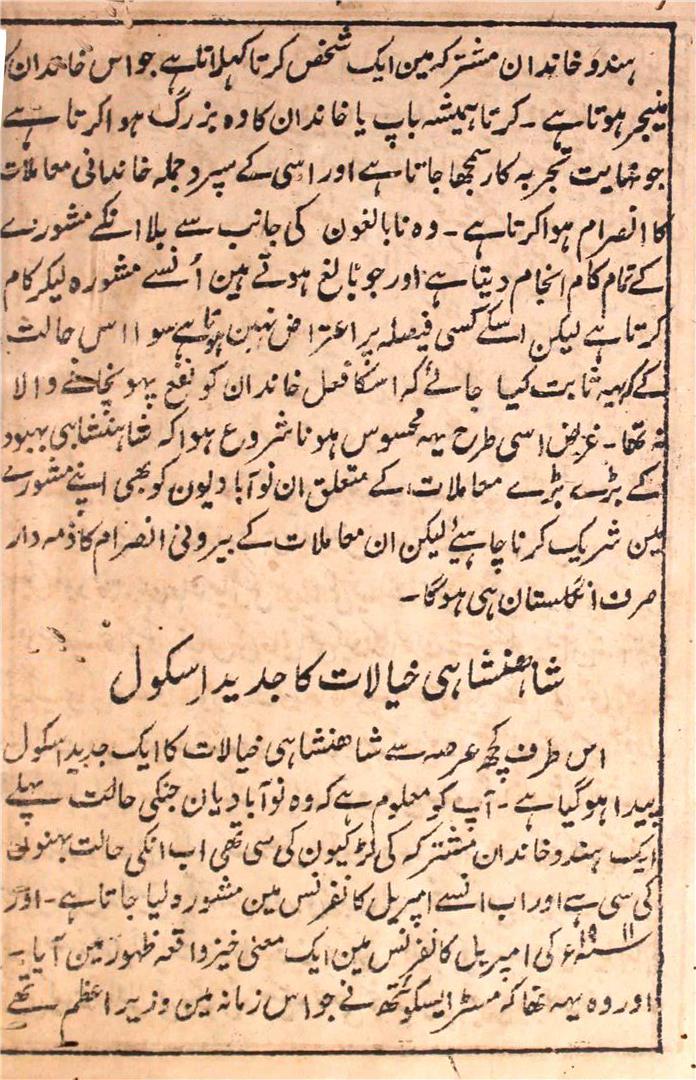 ہندو خاندان مشترکہ مین ایک شخص کرتا کہلاتا ہے جو اس خاندان کا
منیجر ہوتا ہے ۔ کرتا ہمیشہ باپ یا خاندان کا وہ بزرگ ہوا کرتا ہے
جو نہایت تجربہ کار سمجھا جاتا ہے اور اسی کے سپرد جملہ خاندانی معاملات
کا انصرام ہوا کرتا ہے ۔ وہ نابالغون کی جانب سے بلا انکے مشورے
کے تمام کام انجام دیتا ہے اور جو بالغ ہوتے ہین اُنسے مشورہ لیکر کام
کرتا ہے لیکن اسکے کسی فیصلہ پر اعتراض نہین ہوتا ہے سوا اس حالت
کے کہ یہ ثابت کیا جائے کہ اسکا فعل خاندان کو نفع پہونچانے والا
نہ تھا ۔ غرض اسی طرح یہہ محسوس ہونا شروع ہوا کہ شاہنشاہی بہبود
کے بڑے بڑے معاملات کے متعلق ان نوآبادیون کو بھی اپنے مشورے
مین شریک کرنا چاہیئے لیکن ان معاملات کے بیرونی انصرام کا ذمہ دار
صرف انگلستان ہی ہوگا ۔
شاہنشاہی خیالات کا جدید اسکول
اس طرف کچھ عرصہ سے شاہنشاہی خیالات کا ایک جدید اسکول
پیدا ہوگیا ہے ۔ آپ کو معلوم ہے کہ وہ نوآبادیان جنکی حالت پہلے
ایک ہندو خاندان مشترکہ کی لڑکیون کی سی تھی اب انکی حالت بہنون
کی سی ہے اور اب انسے امپریل کانفرنس مین مشورہ لیا جاتا ہے ۔ اور
سنہ ۱۹۱۱ء کی امپریل کانفرنس مین ایک معنی خیز واقعہ ظہور مین آیا ۔
اور وہ یہہ تھا کہ مسٹر ایسکویتھ نے جو اس زمانہ مین وزیر اعظم تھے